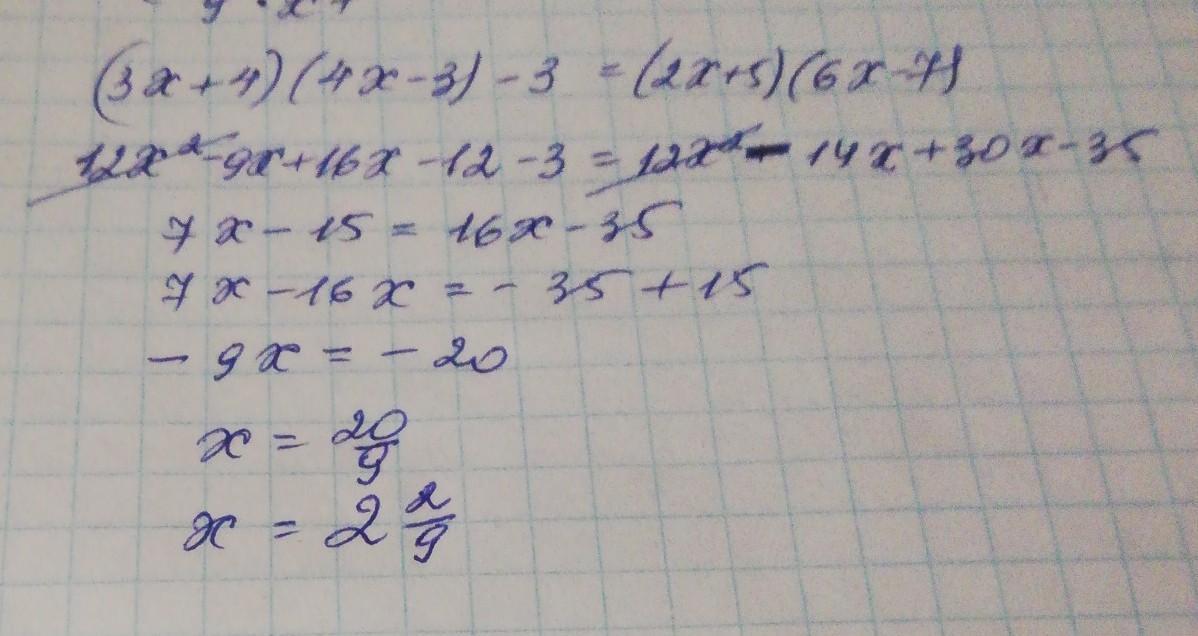 (3x+4)(4x-3)-3 = (2x+5)(6x-7)
12x²-9x+16x-12-3 = 12x²-14x+30x-35
7x-15 = 16x-35
7x-16x = -35+15
-9x = -20
x = 20/9
x = 2 2/9